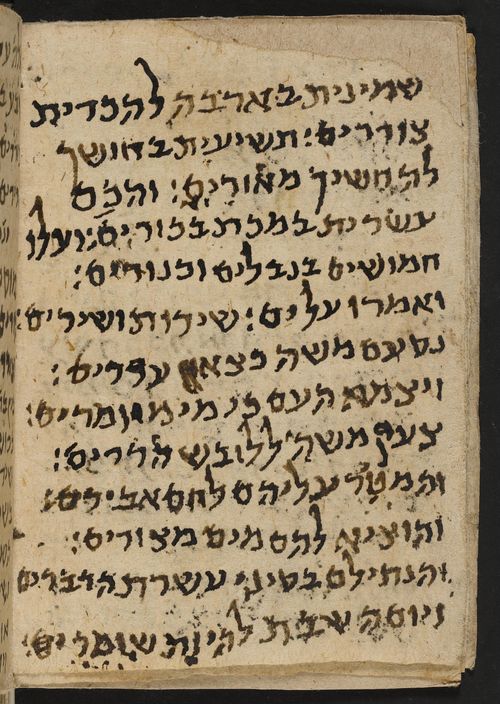 שמינית בארבה להכדית
צוררים: תשיעית בחושך
להחשיך מאורים: והכם
עשרית במכת בכורים: ועלו
חמושים בנבלים וכנורים:
ואמרו עלים: שירות ושירים:
נסעם משה כצאן עדרים:
ויצמא העם כי מים מרים:
צעק משה ללובש הדרים:
והמטר עליהם לחם אבירים:
והוציא להם מים מצורים:
והנחילם בסיני עשרת הדברים
ויום השבת להיות שומרים: